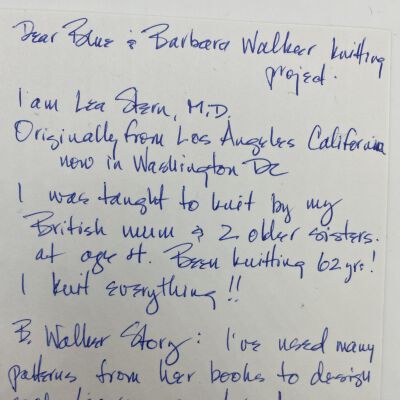 Dear Blue & Barbara Walker knitting
project.
I am Lea Stern, M.D.
Originally from Los Angeles California
now in Washington DC
I was taught to knit by my
British mum & 2 older sisters.
at age Been knitting 62 yrs!
I knit everything!!
B. Walker Story: I've used many
patterns from her books to design